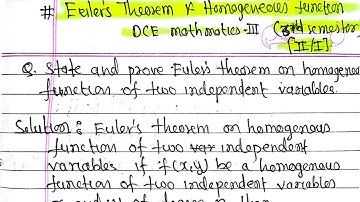 # Euler's Theorem & Homogeneous function
DCE mathematics-III (3rd semester)
[II/I]
Q. State and prove Euler's theorem on homogeneous
function of two independent variables.
Solution: Euler's theorem on homogenous
function of two var independent
variables. if f(x,y) be a homogenous
function of two independent variables